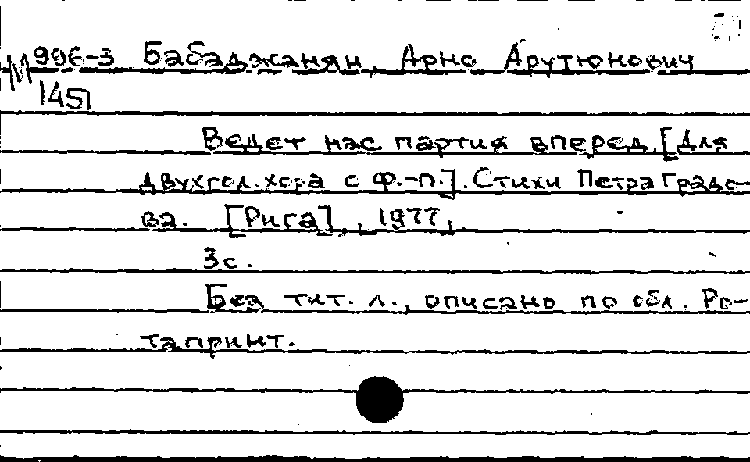 М 996-3 Бабаджанян, Арно Арутюнович
1451
Ведет нас партия вперед. [Для
двухгол. хора с ф.-п.]. Стихи Петра Градо-
ва. [Рига], 1977.
3с.
Без тит. л., описано по обл. Ро-
тапринт.